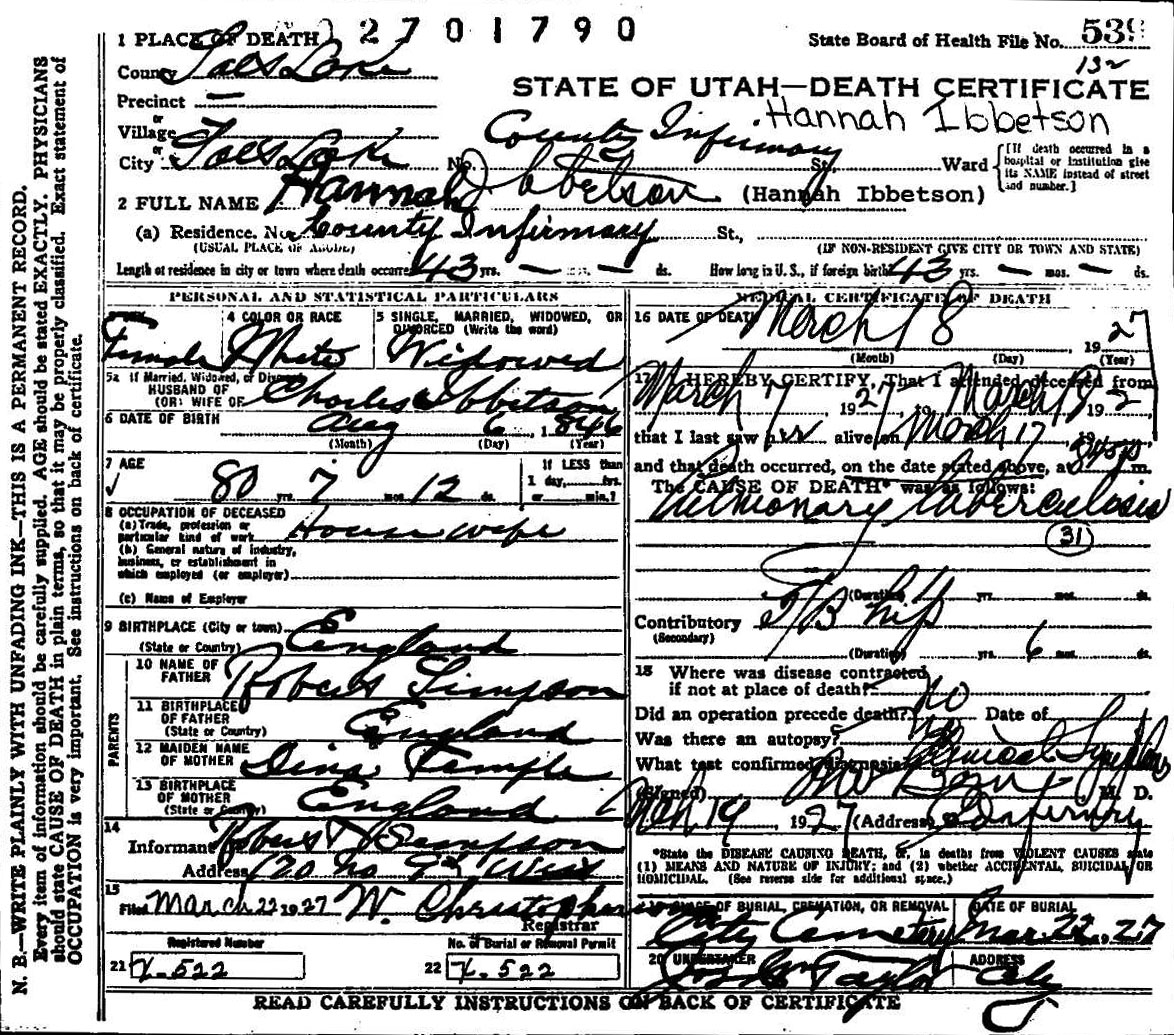 2701790
State Board of Health File No. 539
132
1 PLACE OF DEATH
County Salt Lake
STATE OF UTAH—DEATH CERTIFICATE
Precinct —
Hannah Ibbetson
or
Village
County Infirmary
or
City Salt Lake No. St., Ward
[If death occurred in a hospital or institution give its NAME instead of street and number.]
2 FULL NAME Hannah Ibbetson (Hannah Ibbetson)
(a) Residence. No. County Infirmary St.,
(USUAL PLACE OF ABODE) (IF NON-RESIDENT GIVE CITY OR TOWN AND STATE)
Length of residence in city or town where death occurred 43 yrs. — mos. — ds. How long in U.S., if foreign birth 43 yrs. — mos. — ds.
PERSONAL AND STATISTICAL PARTICULARS
4 COLOR OR RACE
5 SINGLE, MARRIED, WIDOWED, OR DIVORCED (Write the word)
Female White Widowed
5a If Married, Widowed, or Divorced
HUSBAND OF
(OR) WIFE OF Charles Ibbetson
6 DATE OF BIRTH Aug 6 1846
(Month) (Day) (Year)
7 AGE
80 yrs. 7 mos. 12 ds.
If LESS than
1 day, hrs.
or min.?
8 OCCUPATION OF DECEASED
(a) Trade, profession or
particular kind of work House wife
(b) General nature of industry,
business, or establishment in
which employed (or employer)
(c) Name of Employer
9 BIRTHPLACE (City or town)
(State or Country) England
PARENTS
10 NAME OF
FATHER Robert Simpson
11 BIRTHPLACE
OF FATHER
(State or Country) England
12 MAIDEN NAME
OF MOTHER Dina Temple
13 BIRTHPLACE
OF MOTHER
(State or Country) England
14
Informant Robert Simpson
Address 120 No 9th West
15
Filed March 22 1927 W. Christopherson
Registrar
Registered Number
21 X-522
No. of Burial or Removal Permit
22 X-522
MEDICAL CERTIFICATE OF DEATH
16 DATE OF DEATH March 18 1927
(Month) (Day) (Year)
17 I HEREBY CERTIFY, That I attended deceased from
March 7 1927, to March 18 192
that I last saw her alive on March 17 19
and that death occurred, on the date stated above, at m.
The CAUSE OF DEATH* was as follows:
Pulmonary tuberculosis
31
(Duration) yrs. mos. ds.
Contributory TB hip
(Secondary)
(Duration) yrs. 6 mos. ds.
18 Where was disease contracted
if not at place of death?
Did an operation precede death? no Date of
Was there an autopsy? no
What test confirmed diagnosis? Clinical Symptoms
(Signed) M. D.
Mch 19 1927 (Address) Co Infirmary
*State the DISEASE CAUSING DEATH, or, in deaths from VIOLENT CAUSES state
(1) MEANS AND NATURE OF INJURY; and (2) whether ACCIDENTAL, SUICIDAL OR
HOMICIDAL. (See reverse side for additional space.)
19 PLACE OF BURIAL, CREMATION, OR REMOVAL DATE OF BURIAL
City Cemetery Mar. 22 1927
20 UNDERTAKER ADDRESS
Jos Wm Taylor City
READ CAREFULLY INSTRUCTIONS ON BACK OF CERTIFICATE
N. B.—WRITE PLAINLY WITH UNFADING INK—THIS IS A PERMANENT RECORD.
Every item of information should be carefully supplied. AGE should be stated EXACTLY. PHYSICIANS
should state CAUSE OF DEATH in plain terms, so that it may be properly classified. Exact statement of
OCCUPATION is very important. See instructions on back of certificate.